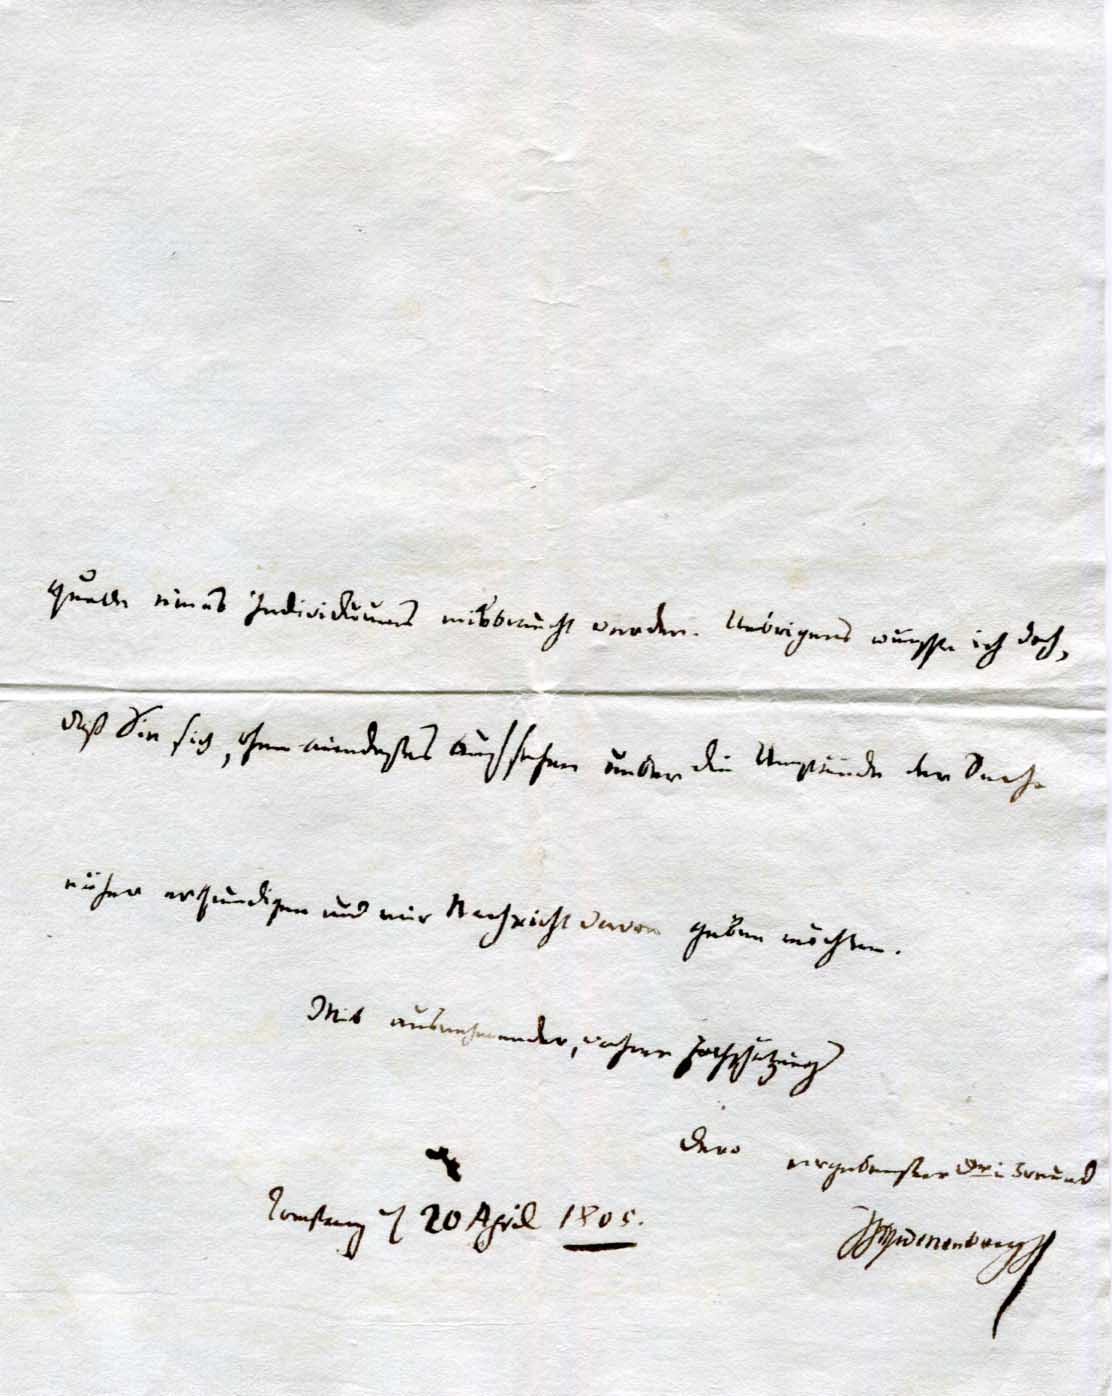 eines Individuums misbraucht werden. Uebrigens wünschte ich doch,
daß Sie sich, ohne mindestes Aufsehen über die Umstände der Sache
näher erkundigen und mir Nachricht davon geben möchten.
Mit ausnehmender, wahrer Hochschätzung
Dero ergebenster Freund
Constanz 20 April 1805.